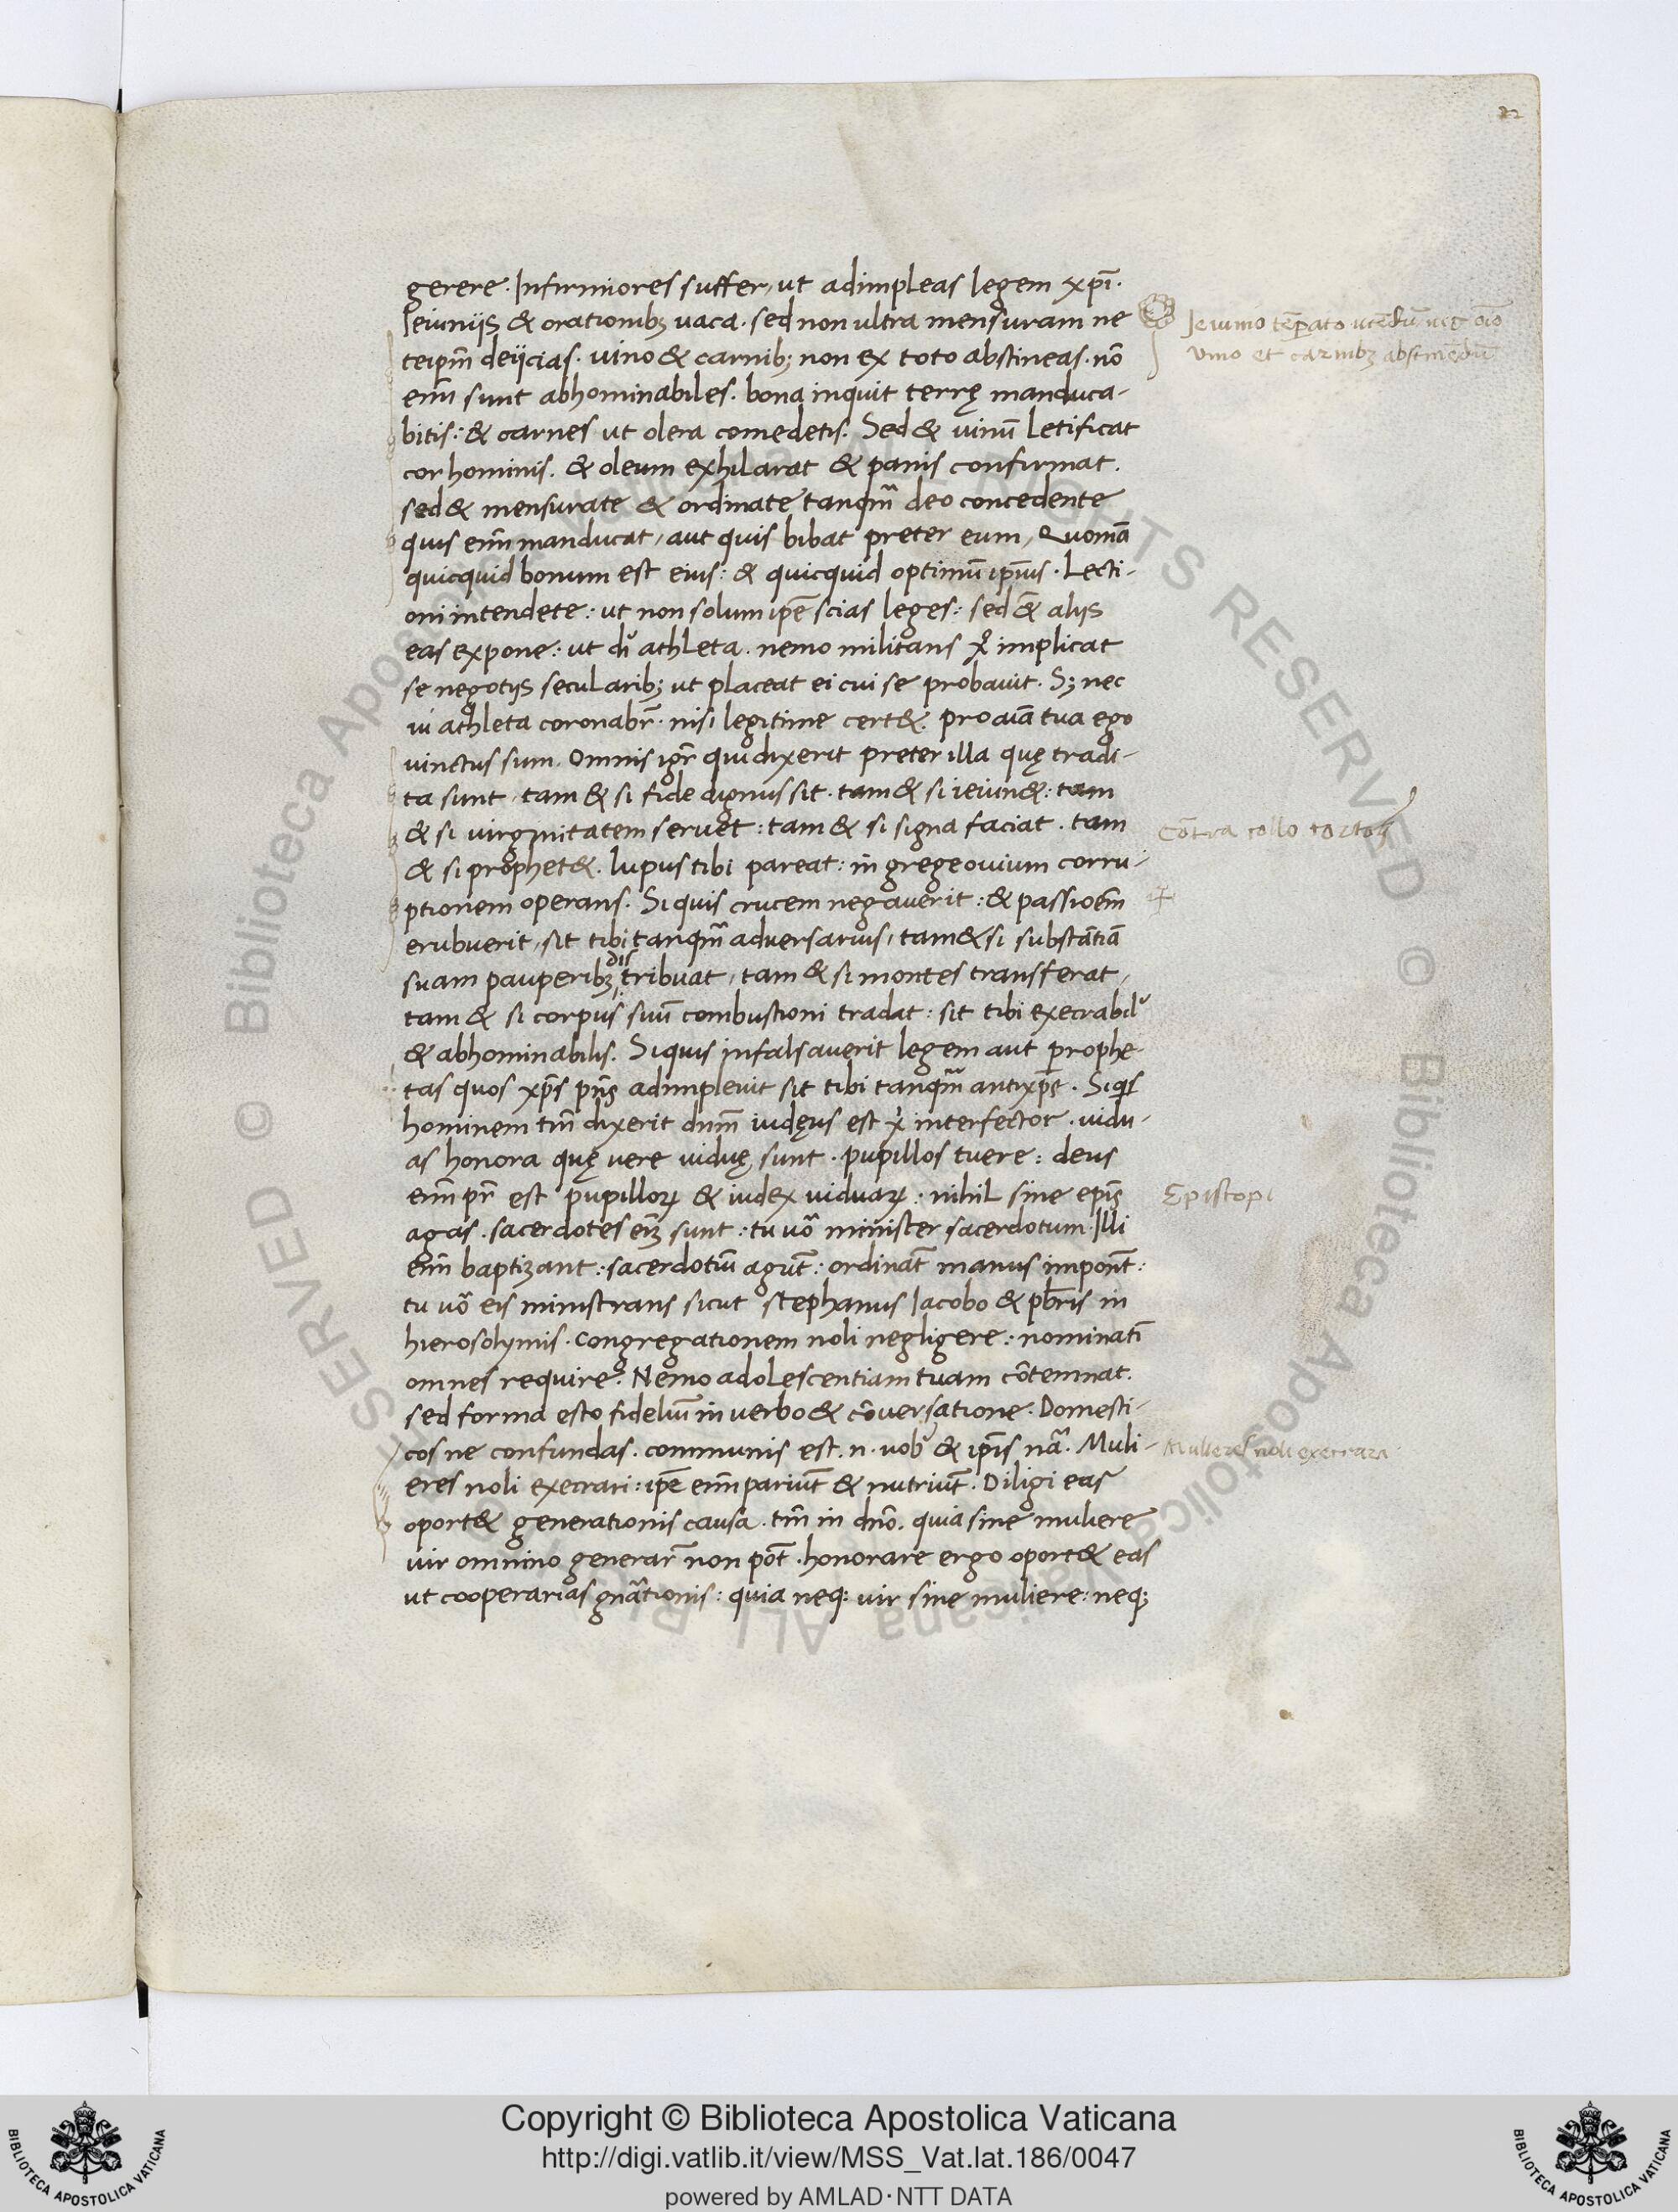 22
gerere. Infirmiores suffer, ut adimpleas legem xp̄i.
Ieiuniis & orationibꝫ uaca. sed non ultra mensuram ne
teip̄m deiicias. uino & carnibꝫ non ex toto abstineas. nō
eñi sunt abhominabiles. bona inquit terrę manduca-
bitis: & carnes ut olera comedetis. Sed & uinū letificat
cor hominis. & oleum exhilarat & panis confirmat.
sed & mensurate & ordinate tanqm̄ deo concedente
quis eñi manducat, aut quis bibat preter eum, Quoniā
quicquid bonum est eius: & quicquid optimū ip̄ius. Lecti-
oni intendete: ut non solum ip̄e scias leges: sed & aliis
eas expone: ut di athleta. nemo militans xp̄o implicat
se negotiis secularibꝫ ut placeat ei cui se probauit. Sꝫ nec
ui athleta coronabr̄. nisi legitime cert&. pro aīa tua ego
uinctus sum. Omnis igr̄ qui dixerit preter illa quę tradi-
ta sunt, tam & si fide dignus sit. tam & si ieiun&: tam
& si uirginitatem seruet: tam & si signa faciat. tam
& si prophet&. lupus tibi pareat: in grege ouium corru-
ptionem operans. Si quis crucem negauerit: & passioēm
erubuerit, sit tibi tanqm̄ aduersarius, tam & si substātiā
suam pauperibꝫ distribuat, tam & si montes transferat,
tam & si corpus suū combustioni tradat: sit tibi execrabil'
& abhominabilis. Si quis infalsauerit legem aut prophe-
tas quos xp̄s pn̄s adimpleuit sit tibi tanqm̄ antixp̄s. Si qs
hominem tm̄ dixerit dnm̄ iudęus est xi interfector. uidu-
as honora quę uere uiduę sunt. pupillos tuere: deus
eñi pr̄ est pupilloꝝ & iudex uiduaꝝ. nihil sine ep̄is
agas. sacerdotes eñi sunt: tu uō minister sacerdotum. Illi
eñi baptizant: sacerdotiū agūt: ordināt manus imponūt:
tu uō eis ministrans sicut stephanus Iacobo & pb̄ris in
hierosolymis. congregationem noli negligere: nominatī
omnes require. Nemo adolescentiam tuam cōtemnat.
sed forma esto fideliū in uerbo & cōuersatione. Domesti-
cos ne confundas. communis est .n. uob' & ip̄is nā. Muli-
eres noli execrari: ip̄e eñi pariūt & nutriūt. Diligi eas
oport& generationis causa. tm̄ in dn̄o. quia sine muliere
uir omnino generar̄ non pōt. honorare ergo oport& eas
ut cooperarias gnātionis: quia neqꝫ uir sine muliere: neqꝫ
Ieiunio tēperato utēdū nec oīo
vino et carnibꝫ abstinēdū
Cōtra collo tortos
Episcopi
Mulieres noli execrara
Copyright © Biblioteca Apostolica Vaticana
http://digi.vatlib.it/view/MSS_Vat.lat.186/0047
powered by AMLAD·NTT DATA
BIBLIOTECA APOSTOLICA VATICANA
BIBLIOTECA APOSTOLICA VATICANA
© Biblioteca Apostolica Vaticana ALL RIGHTS RESERVED © Biblioteca Apostolica Vaticana ALL RIGHTS RESERVED